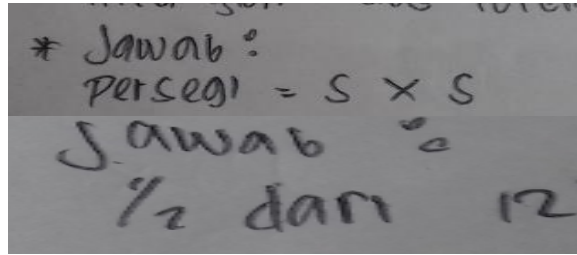 * Jawab :
Persegi = S × S
Jawab :
1/2 dari 12